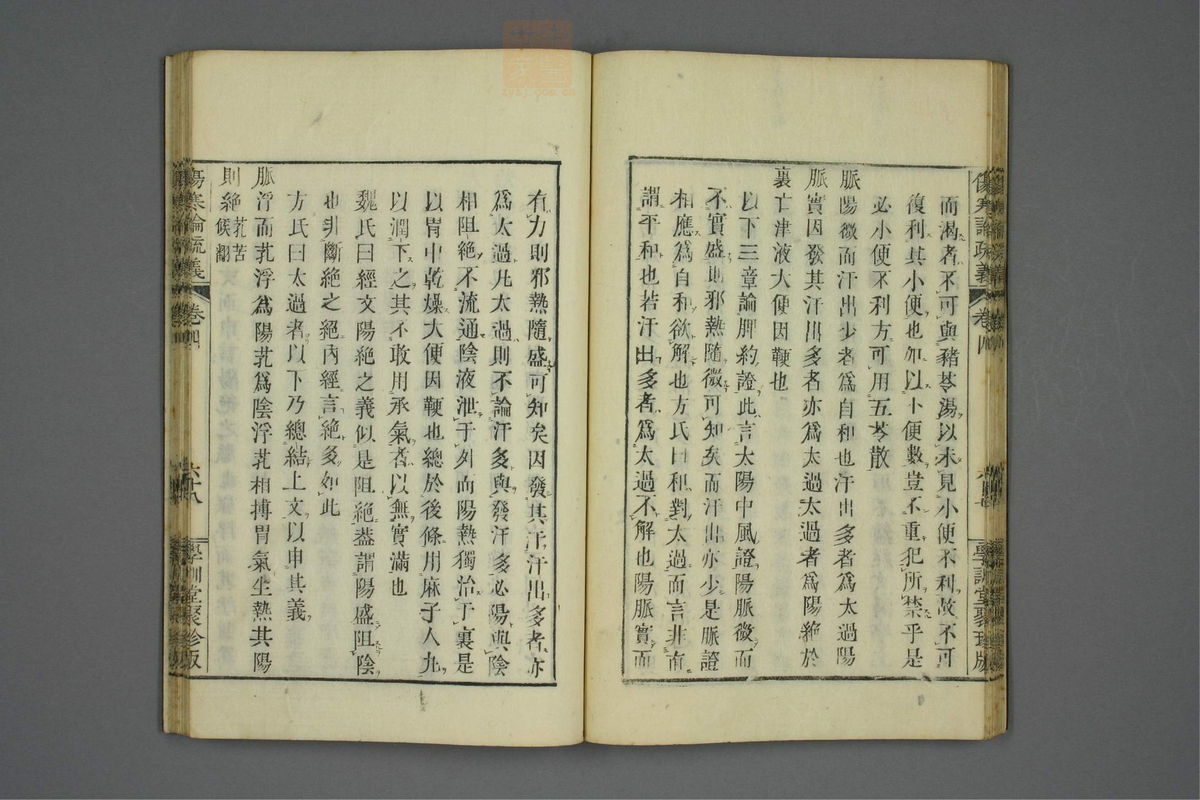 而渴者不可與豬苓湯以未見小便不利故不可
復利其小便也如以小便數豈不重犯所禁乎是
必小便不利方可用五苓散
脈陽微而汗出少者爲自和也汗出多者爲太過陽
脈實因發其汗出多者亦爲太過太過者爲陽絶於
裏亡津液大便因鞕也
以下三章論脾約證此言太陽中風證陽脈微而
不實盛則邪熱隨微可知矣而汗出亦少是脈證
相應爲自和欲解也方氏曰和對太過而言非直
謂平和也若汗出多者爲太過不解也陽脈實而
傷寒論疏義 卷四 學訓堂聚珍版
有力則邪熱隨盛可知矣因發其汗汗出多者亦
爲太過凡太過則不論汗多與發汗多必陽與陰
相阻絶不流通陰液泄于外而陽熱獨治于裏是
以胃中乾燥大便因鞕也總於後條用麻子人丸
以潤下之其不敢用承氣者以無實滿也
魏氏曰經文陽絶之義似是阻絶蓋謂陽盛阻陰
也非斷絶之絶內經言絶多如此
方氏曰太過者以下乃總結上文以申其義
脈浮而芤浮爲陽芤爲陰浮芤相搏胃氣生熱其陽
則絶芤苦候翻
傷寒論疏義 卷四 六十八 學訓堂聚珍版